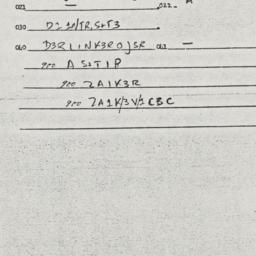 021 — 022. A
030 D2 10/TR, S+T3
040 D3R LINK3ROJSR 041 —
900 A S2TIP
900 ZAIK3R
900 ZA1K/3V/2 CBC